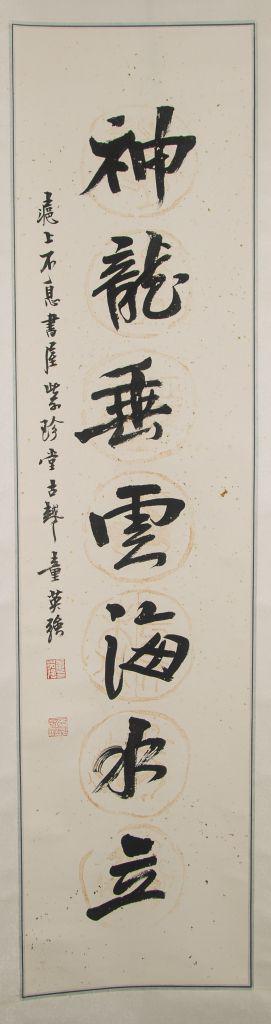 神龍垂雲海水立
滬上不息書屋紫珍堂古越童英強